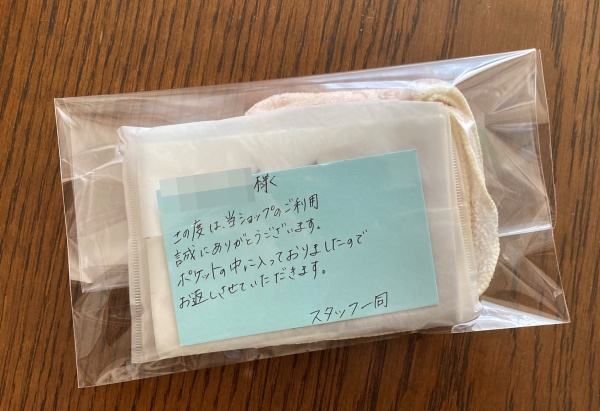 様
この度は、当ショップのご利用
誠にありがとうございます。
ポケットの中に入っておりましたので
お返しさせていただきます。
スタッフ一同